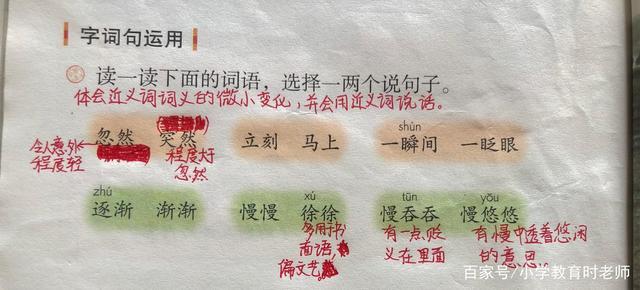 字词句运用
读一读下面的词语，选择一两个说句子。
体会近义词词义的微小变化，并会用近义词说话。
shùn
忽然 突然 立刻 马上 一瞬间 一眨眼
令人意外
程度轻
程度大于
忽然
zhú xú tūn yōu
逐渐 渐渐 慢慢 徐徐 慢吞吞 慢悠悠
多用于书
面语，
偏文艺。
有一点贬
义在里面
有慢中透着悠闲
的意思。
百家号/小学教育时老师